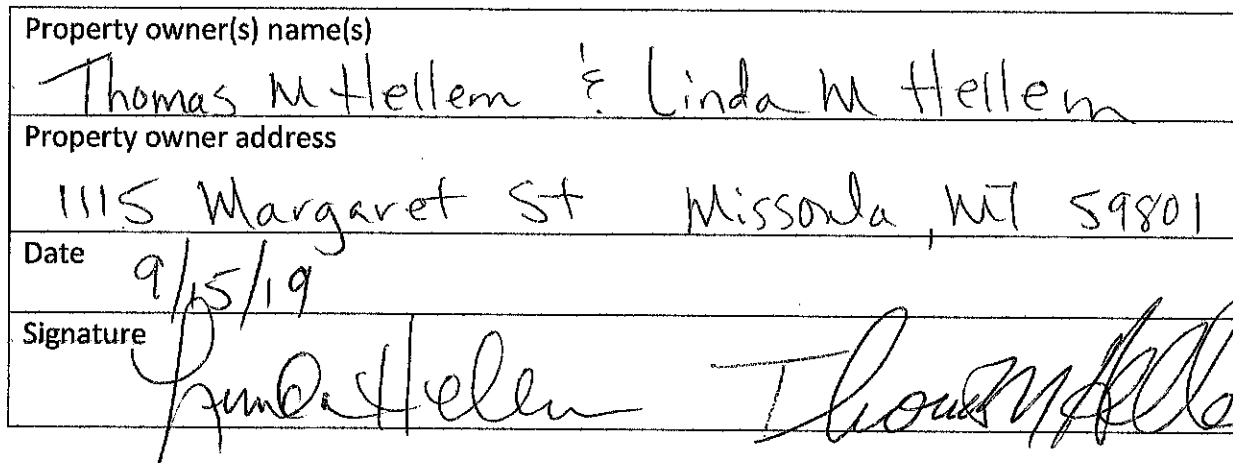 Property owner(s) name(s)
Thomas M Hellem & Linda M Hellem
Property owner address
1115 Margaret St Missoula, MT 59801
Date 9/15/19
Signature
Linda Hellem Thomas M Helle